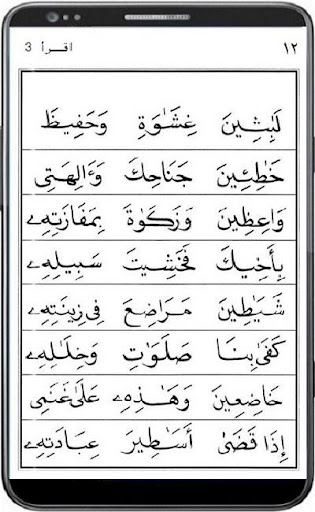 ١٢ اقرأ 3
لَٰبِثِينَ غِشَٰوَةِ وَحَفِيظَ
خَٰطِـِٔينَ جَنَاحِكَ وَءَالِهَتِى
وَاعِظِينَ وَزَكَوٰةَ بِمَفَازَتِهِۦ
بِأَخِيكَ فَخَشِيتَ سَبِيلِهِۦ
شَيَٰطِينَ مَرَاضِعَ فِى زِينَتِهِۦ
كَفَىٰ بِنَا صَلَوَٰتِ وَخِلَٰلِهِۦ
خَاضِعِينَ وَهَٰذِهِۦ عَلَىٰ غَنَمِى
إِذَا قَضَىٰ أَسَٰطِيرَ عِبَادَتِهِۦ